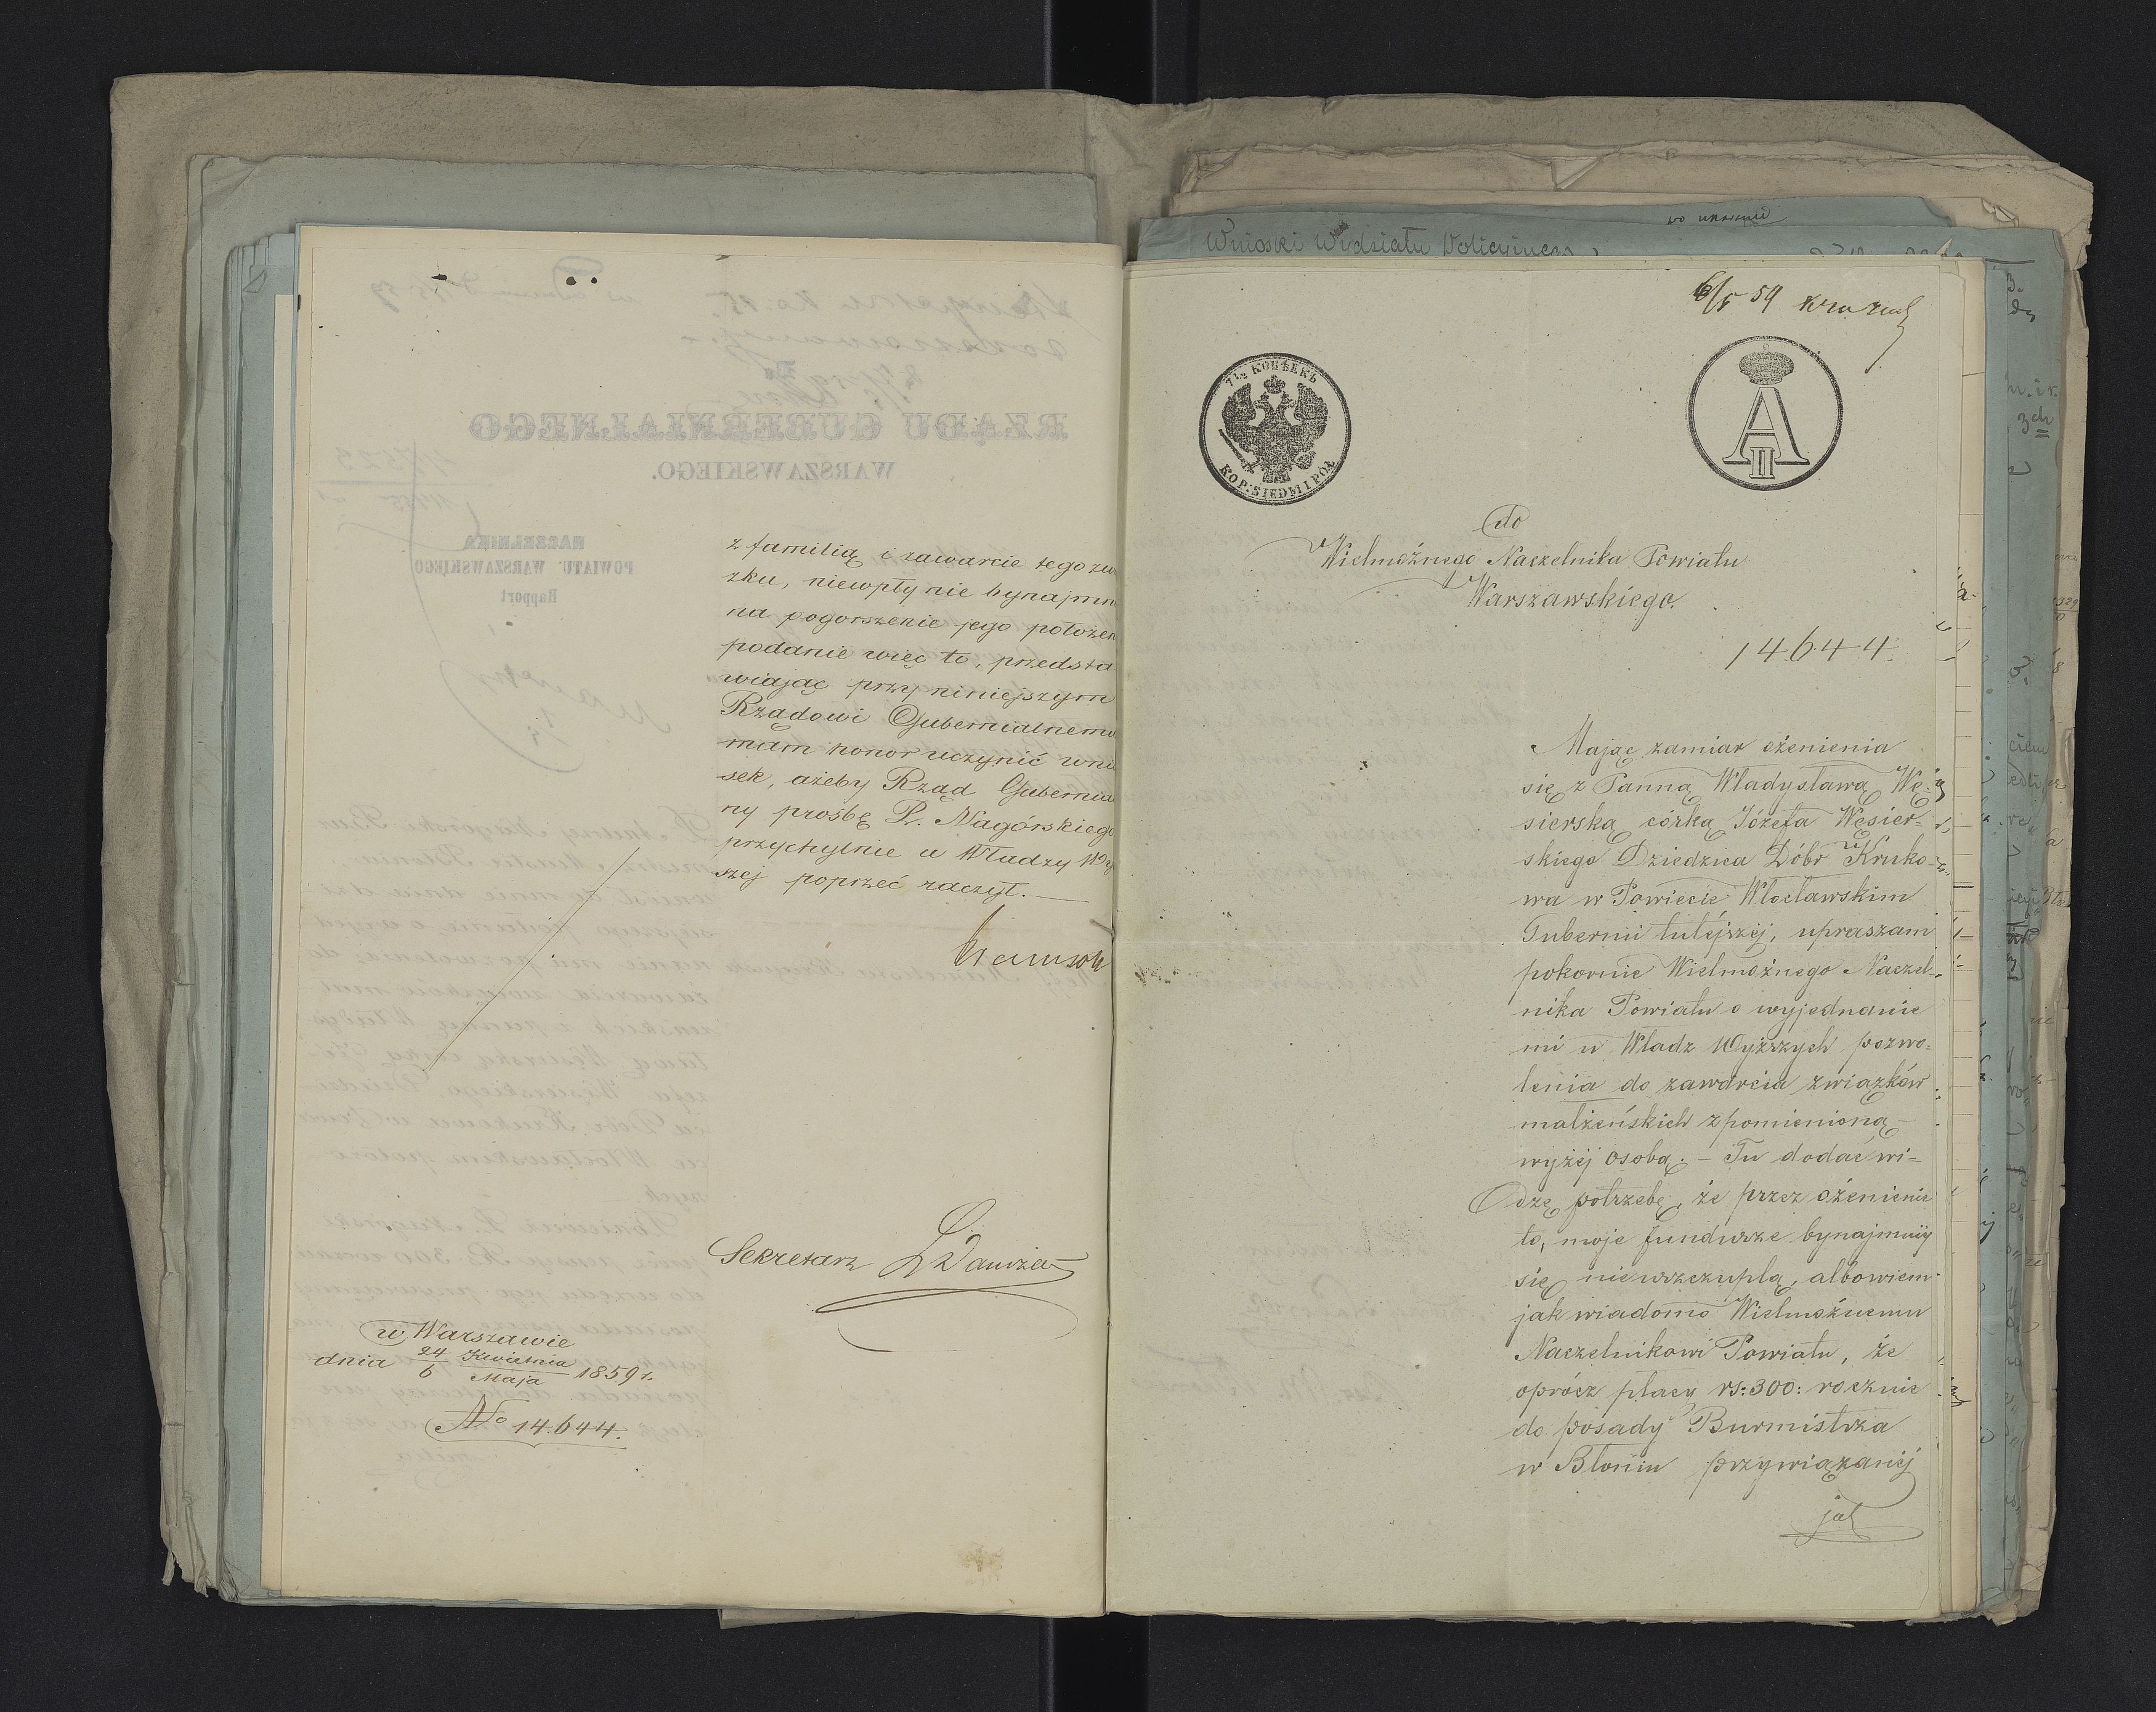 z familią i zawarcie tego zw
zku, niewpłynie bynajmn
na pogorszenie jego położen
podanie więc to, przedsta
wiając przy niniejszym
Rządowi Gubernialnemu
mam honor uczynić wnio
sek, ażeby Rząd Gubernial
ny prośbę P. Nagórskiego
przychylnie u Władzy Wyż
szej poprzeć raczył.
Sekretarz
w Warszawie
dnia 24 Kwietnia / 6 Maja 1859 r.
No 14.644.
Wnioski Wydziału Policyjnego
6/5 59
7½ КОПѢЕКЪ
KOP: SIEDM I PÓŁ
A II
do
Wielmożnego Naczelnika Powiatu
Warszawskiego.
14644.
Mając zamiar ożenienia
się z Panną Władysławą Wę=
sierską córką Józefa Węsier=
skiego Dziedzica Dóbr Kruko=
wa w Powiecie Włocławskim
Gubernii tutéjszéj, upraszam
pokornie Wielmożnego Naczel=
nika Powiatu o wyjednanie
mi u Władz Wyższych pozwo=
lenia do zawarcia związków
małżeńskich z pomienioną
wyżéj osobą. – Tu dodać wi=
dzę potrzebę, że przez ożenienie
to, moje fundusze bynajmniéj
się nie uszczuplą, albowiem
jak wiadomo Wielmożnemu
Naczelnikowi Powiatu, że
oprócz płacy rs: 300: rocznie
do posady Burmistrza
w Błoniu przywiązanéj